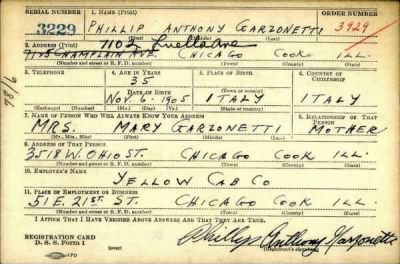 SERIAL NUMBER 1. NAME (Print) ORDER NUMBER
3229 PHILLIP ANTHONY GARZONETTI 3929
(First) (Middle) (Last)
2. ADDRESS (Print) 1102 Luella Ave
7145 CHAMPLAIN AVE. CHICAGO COOK ILL.
(Number and street or R. F. D. number) (Town) (County) (State)
3. TELEPHONE 4. AGE IN YEARS 5. PLACE OF BIRTH 6. COUNTRY OF CITIZENSHIP
35
DATE OF BIRTH (Town or county)
NOV. 6 1905 ITALY ITALY
(Exchange) (Number) (Mo.) (Day) (Yr.) (State or country)
7. NAME OF PERSON WHO WILL ALWAYS KNOW YOUR ADDRESS 8. RELATIONSHIP OF THAT PERSON
MRS. MARY GARZONETTI MOTHER
(Mr., Mrs., Miss) (First) (Middle) (Last)
9. ADDRESS OF THAT PERSON
3518 W. OHIO ST. CHICAGO COOK ILL.
(Number and street or R. F. D. number) (Town) (County) (State)
10. EMPLOYER'S NAME
YELLOW CAB CO
11. PLACE OF EMPLOYMENT OR BUSINESS
51 E. 21ST. ST. CHICAGO COOK ILL
(Number and street or R. F. D. number) (Town) (County) (State)
I AFFIRM THAT I HAVE VERIFIED ABOVE ANSWERS AND THAT THEY ARE TRUE.
REGISTRATION CARD
D. S. S. Form 1 Phillip Anthony Garzonetti
(Registrant's signature)
78/6